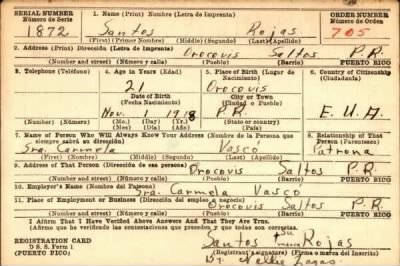 SERIAL NUMBER 1. Name (Print) Nombre (Letra de Imprenta) ORDER NUMBER
Número de Serie Número de Orden
1872 Santos Rojas 705
(First) Primer Nombre (Middle) Segundo (Last) Apellido
2. Address (Print) Dirección (Letra de Imprenta)
Orocovis Saltos P.R.
(Number and street) Número y calle (Town) Pueblo (Barrio) PUERTO RICO
3. Telephone (Teléfono) 4. Age in Years (Edad) 5. Place of Birth (Lugar de Nacimiento) 6. Country of Citizenship (Ciudadanía)
21 Orocovis
Date of Birth (Town or City)
(Fecha Nacimiento) (Ciudad o Pueblo)
Nov. 1918 P.R. E.U.A.
(Mo.) (Day) (Yr.) (State or country)
(Number) Número (Mes) (Día) (Año) (Estado o país)
7. Name of Person Who Will Always Know Your Address (Nombre de la Persona que siempre sabrá su dirección) 8. Relationship of That Person (Parentesco)
Sra. Carmela Vasco Patrona
(First) Primer Nombre (Middle) Segundo (Last) Apellido
9. Address of That Person (Dirección de esa persona)
Orocovis Saltos P.R.
(Number and street) Número y calle (Town) Pueblo (Barrio) PUERTO RICO
10. Employer's Name (Nombre del Patrono)
Sra. Carmela Vasco
11. Place of Employment or Business (Dirección del empleo o negocio)
Orocovis Saltos P.R.
(Number and street) Número y calle (Town) Pueblo (Barrio) PUERTO RICO
I Affirm That I Have Verified Above Answers and That They are True.
(Afirmo que he verificado las contestaciones que preceden y que todas son correctas.
REGISTRATION CARD Santos Rojas
D S S. Form 1 (Registrant's signature) (Firma o marca del Inscrito)
By Nellie